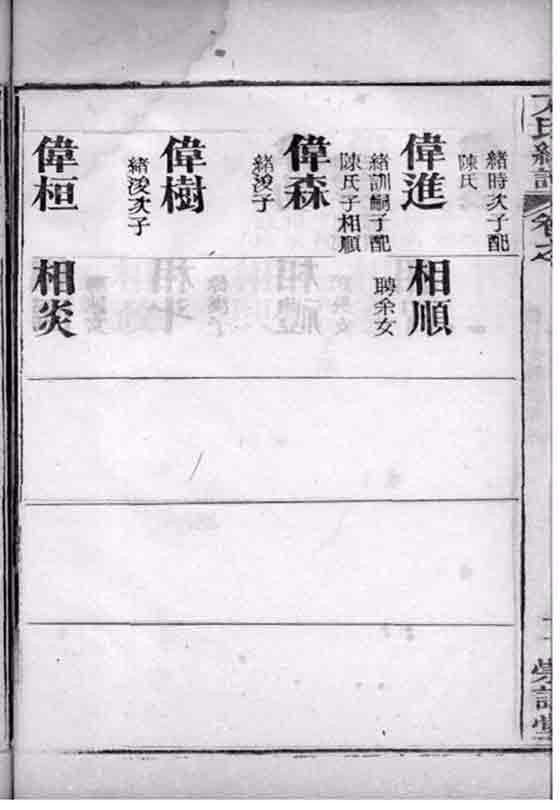 緒時次子配
陳氏
偉進
緒訓嗣子配
陳氏子相順
偉森
緒浚子
偉樹
緒浚次子
偉桓
相順
聘余女
相炎